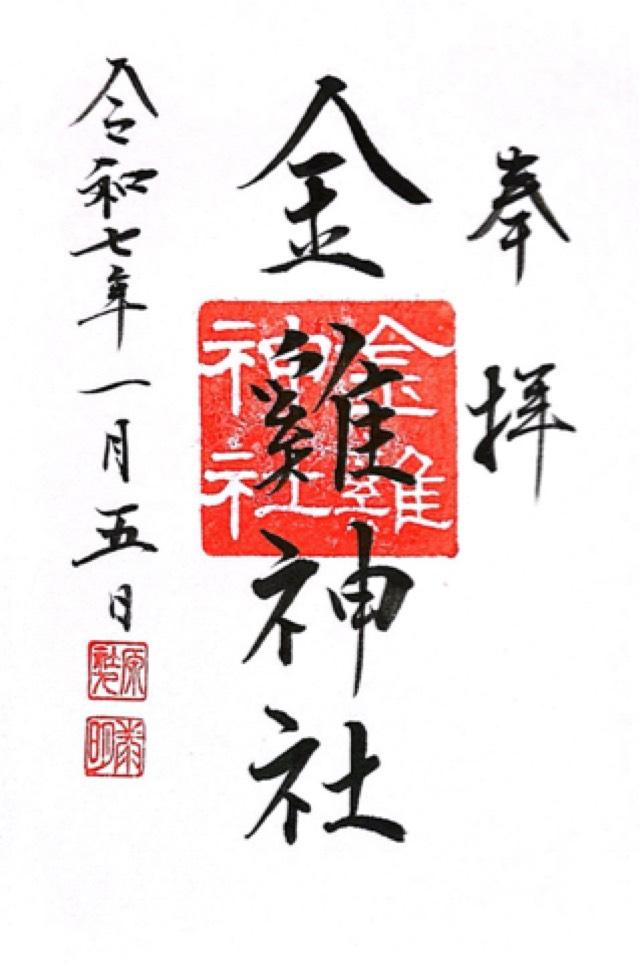 奉拝
金雞神社
金雞神社
令和七年一月五日